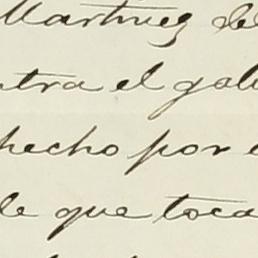 Martinez del
ntra el gob
hecho por e
le que toca